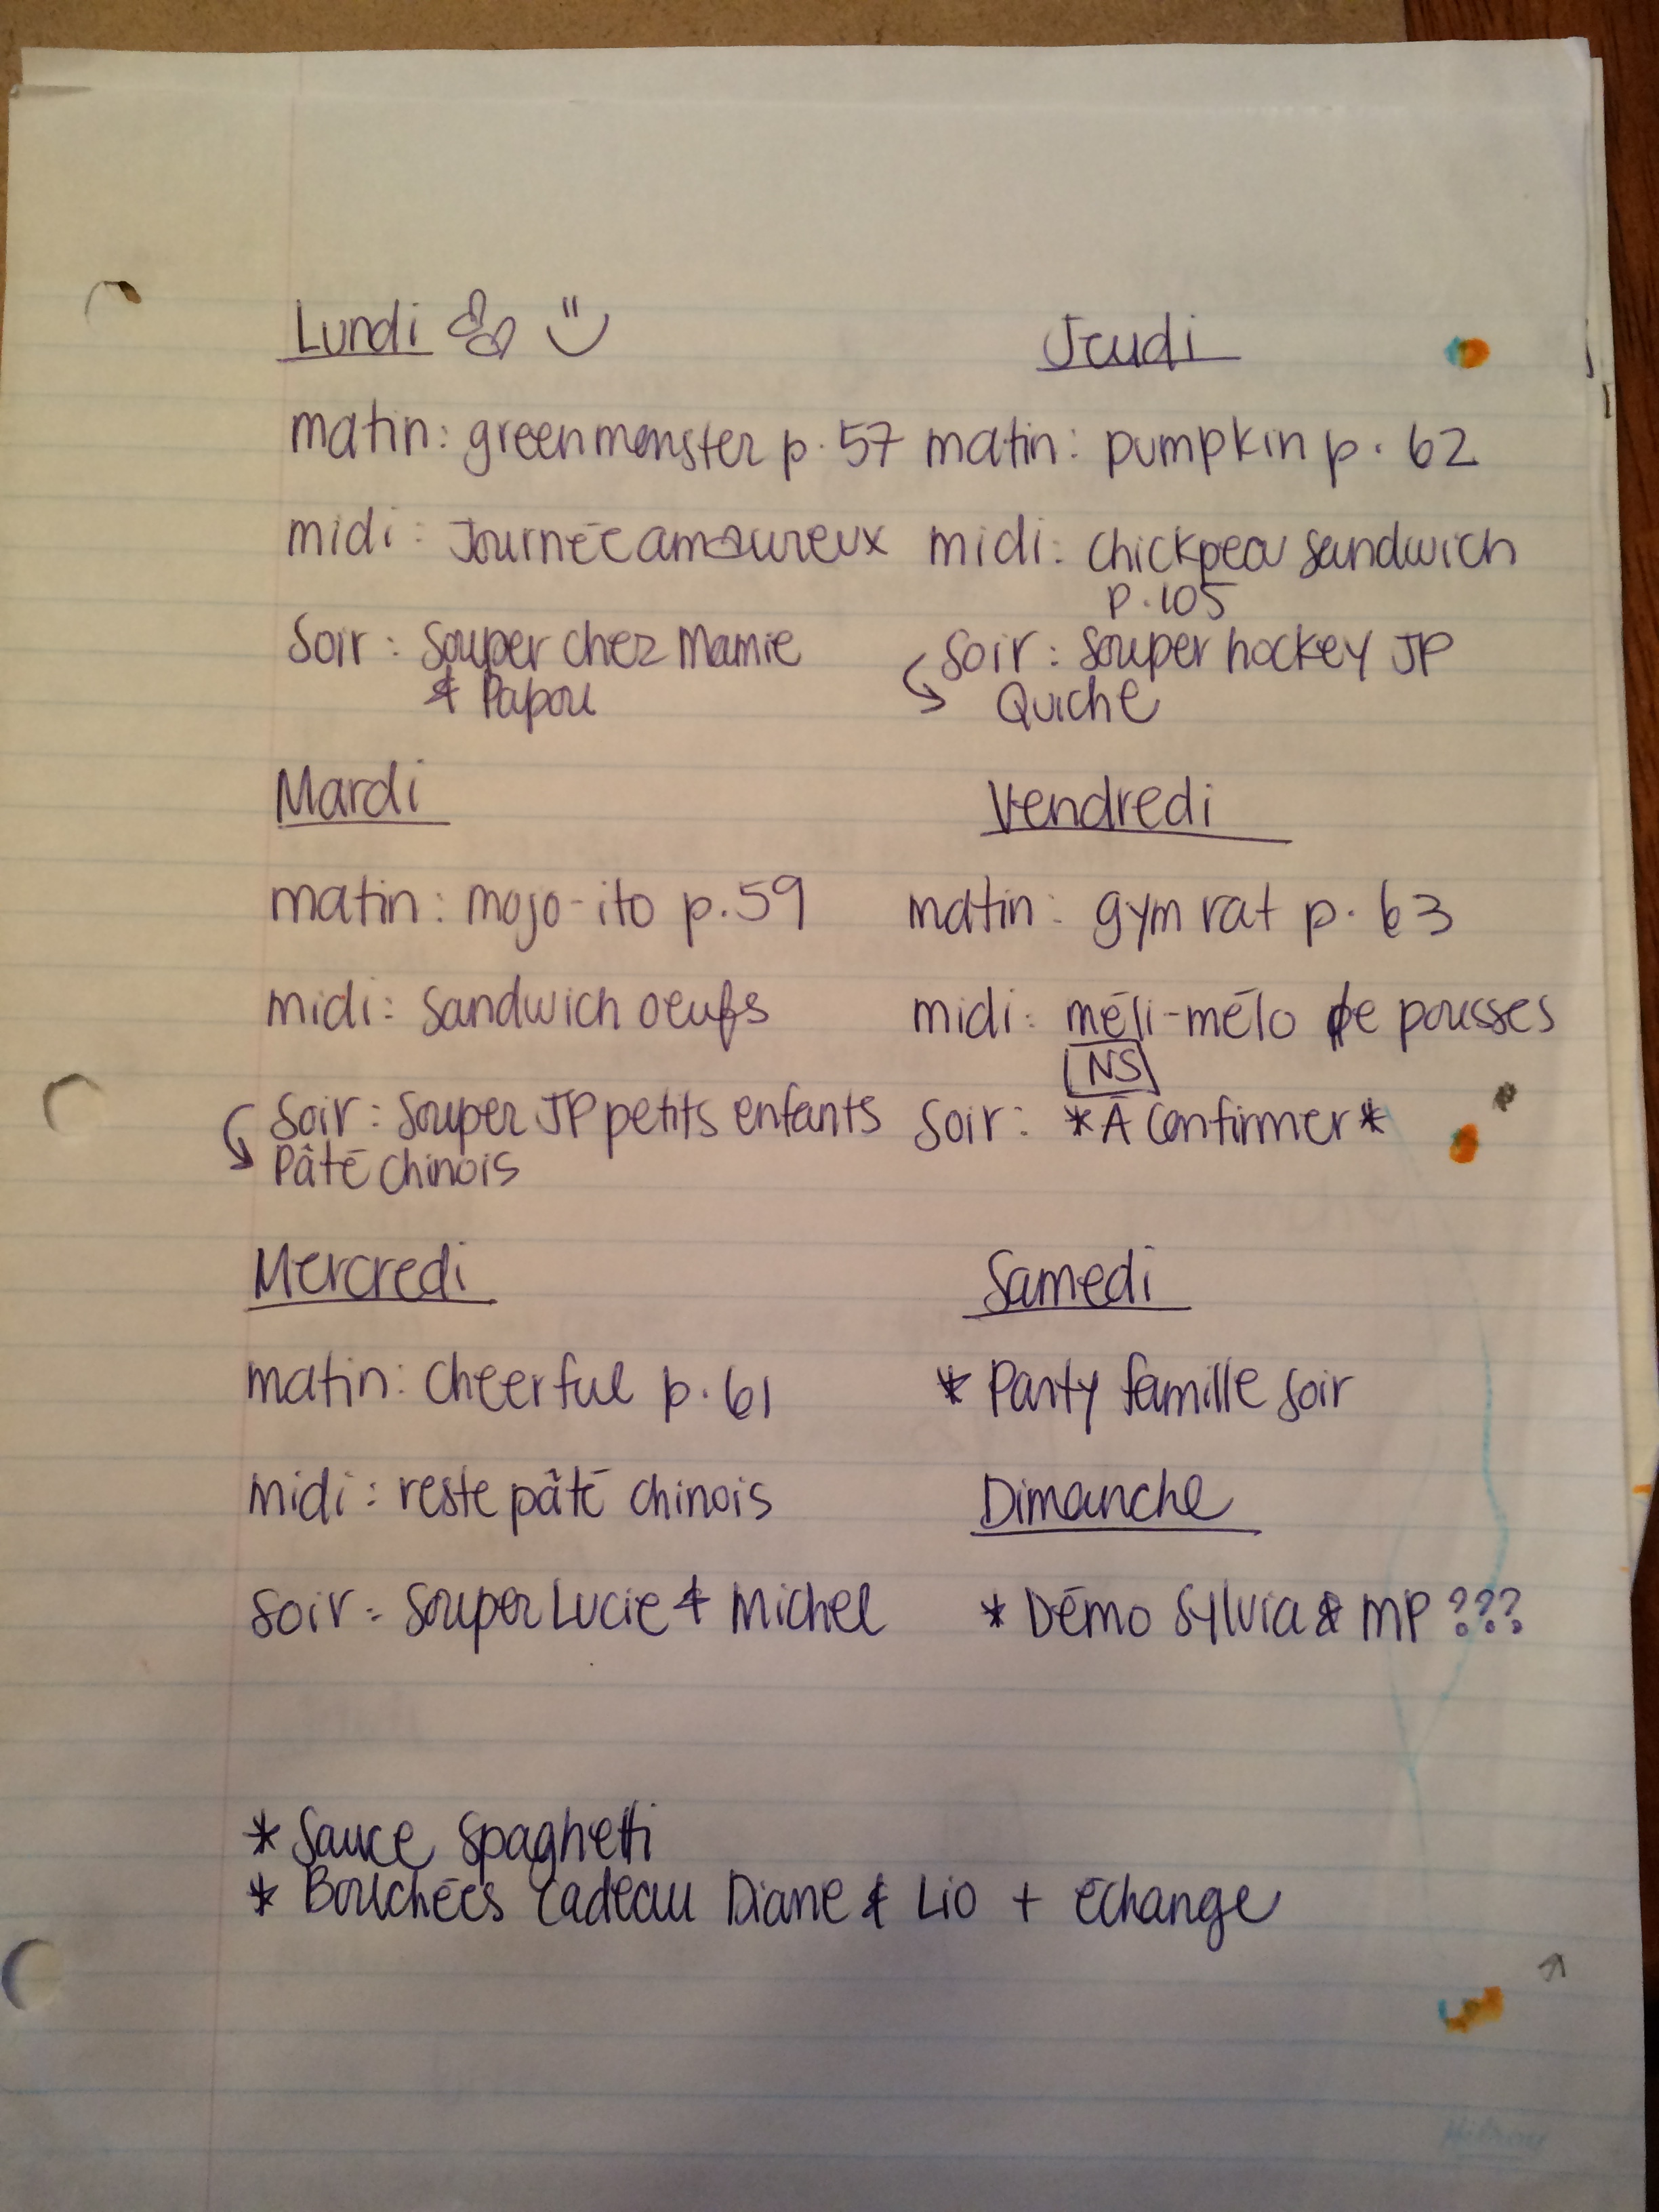 Lundi
matin: green monster p. 57
midi: Journée amoureux
Soir: Souper chez Mamie
& Papou
Mardi
matin: mojo-ito p. 59
midi: Sandwich oeufs
Soir: Souper JP petits enfants
Pâté chinois
Mercredi
matin: cheerful p. 61
midi: reste pâté chinois
Soir: Souper Lucie & Michel
Jeudi
matin: pumpkin p. 62
midi: chickpea sandwich
p. 105
Soir: Souper hockey JP
Quiche
Vendredi
matin: gym rat p. 63
midi: méli-mélo de pousses
NS
Soir: *À confirmer*
Samedi
* Party famille soir
Dimanche
* Démo Sylvia & MP ???
* Sauce spaghetti
* Bouchées cadeau Diane & Lio + échange